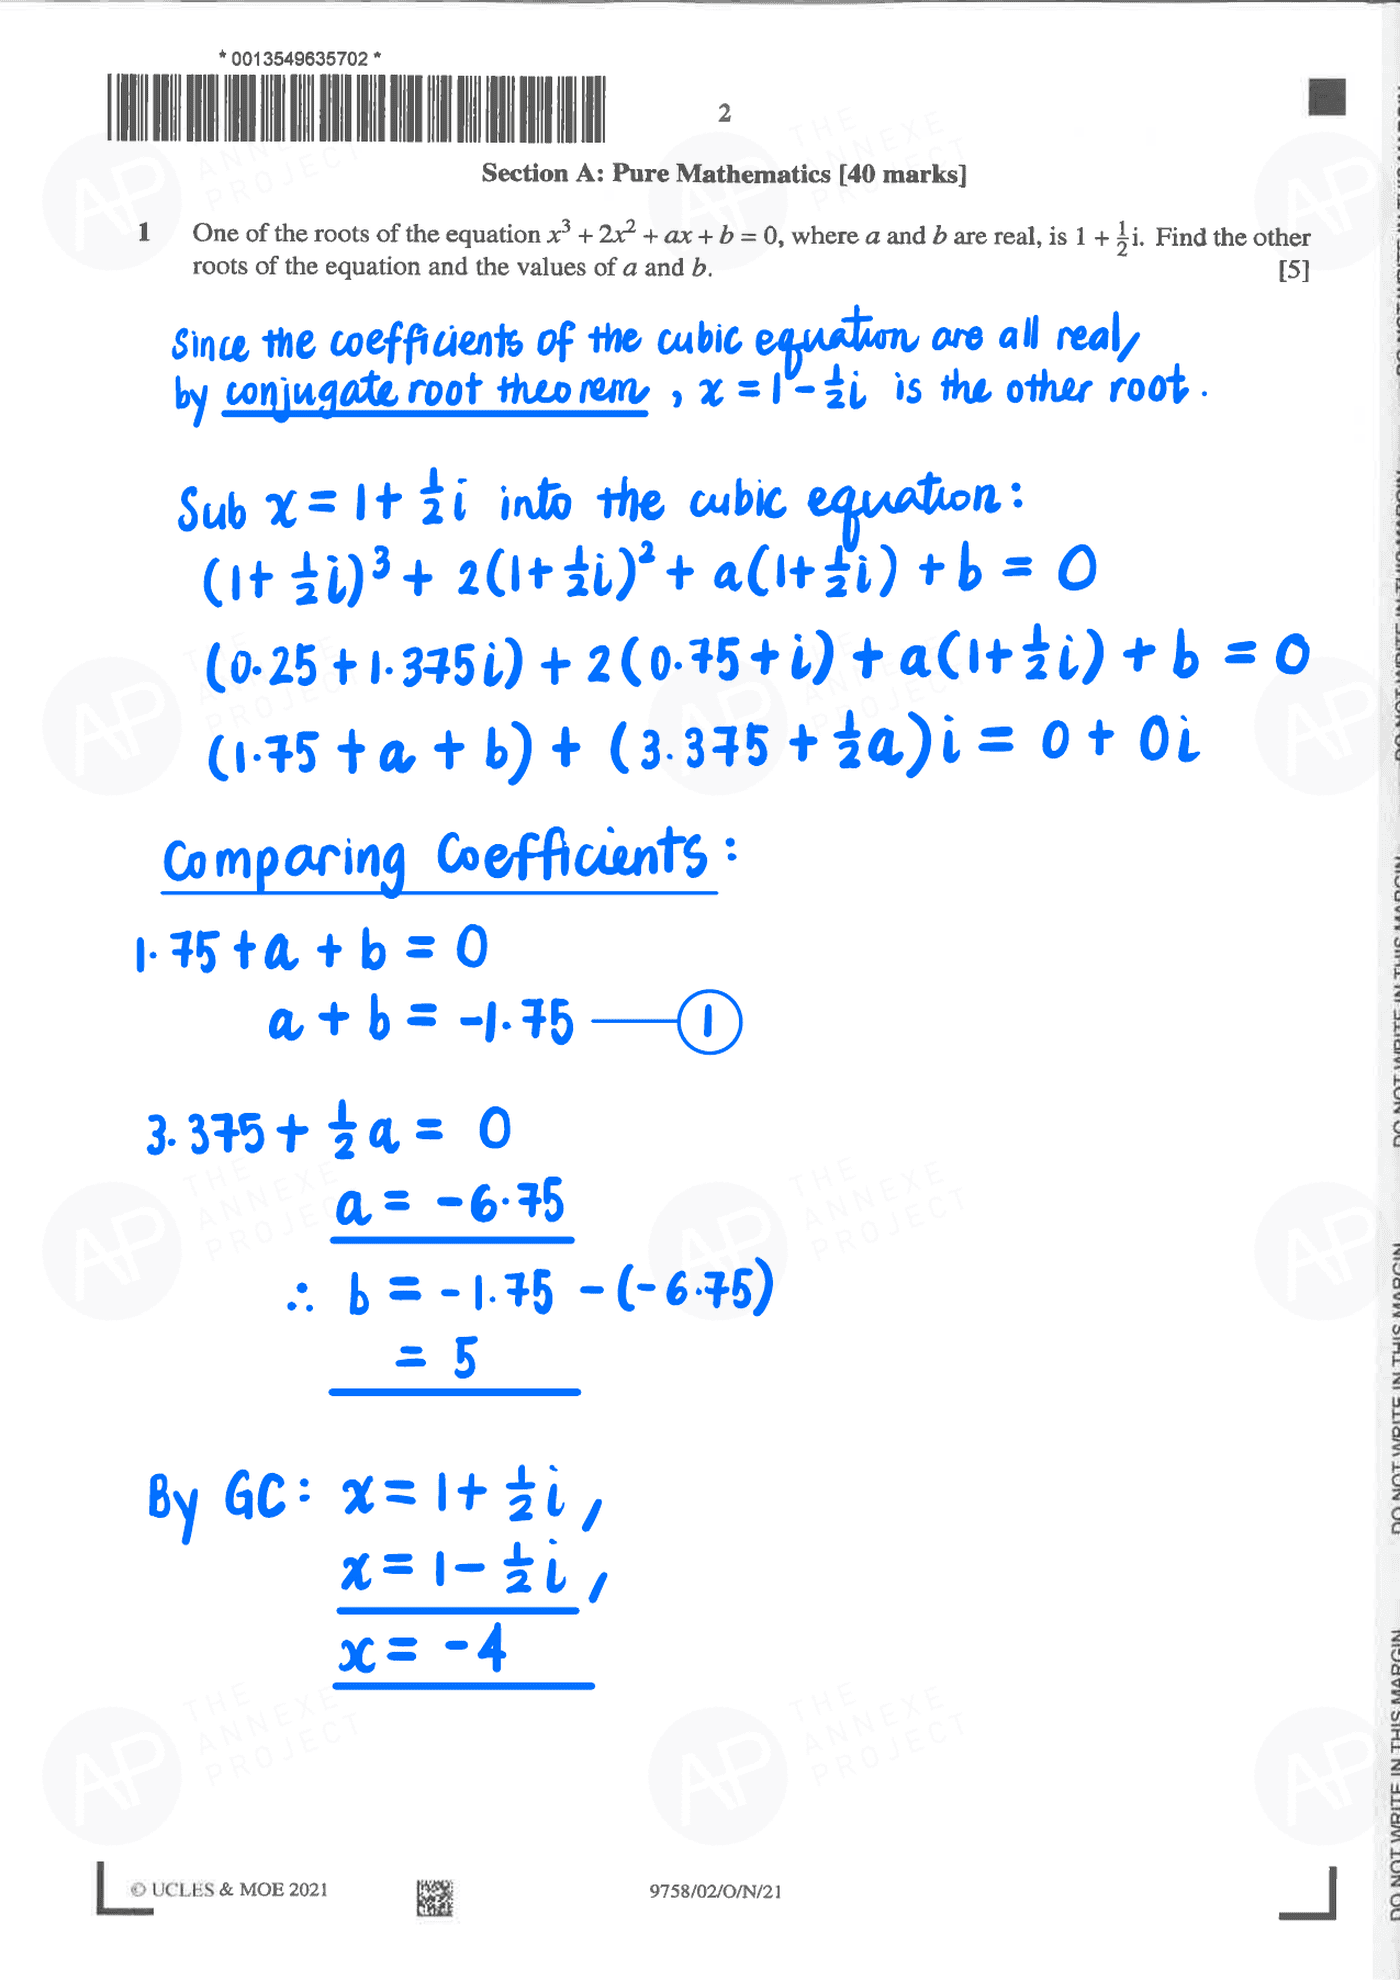 * 0013549635702 *
2
Section A: Pure Mathematics [40 marks]
1 One of the roots of the equation x³ + 2x² + ax + b = 0, where a and b are real, is 1 + ½i. Find the other
roots of the equation and the values of a and b. [5]
Since the coefficients of the cubic equation are all real,
by conjugate root theorem, x = 1 - ½i is the other root.
Sub x = 1 + ½i into the cubic equation:
(1 + ½i)³ + 2(1 + ½i)² + a(1 + ½i) + b = 0
(0.25 + 1.375i) + 2(0.75 + i) + a(1 + ½i) + b = 0
(1.75 + a + b) + (3.375 + ½a)i = 0 + 0i
Comparing Coefficients:
1.75 + a + b = 0
a + b = -1.75 —— ①
3.375 + ½a = 0
a = -6.75
∴ b = -1.75 - (-6.75)
= 5
By GC: x = 1 + ½i,
x = 1 - ½i,
x = -4
© UCLES & MOE 2021
9758/02/O/N/21
DO NOT WRITE IN THIS MARGIN
DO NOT WRITE IN THIS MARGIN
DO NOT WRITE IN THIS MARGIN
AP THE ANNEXE PROJECT